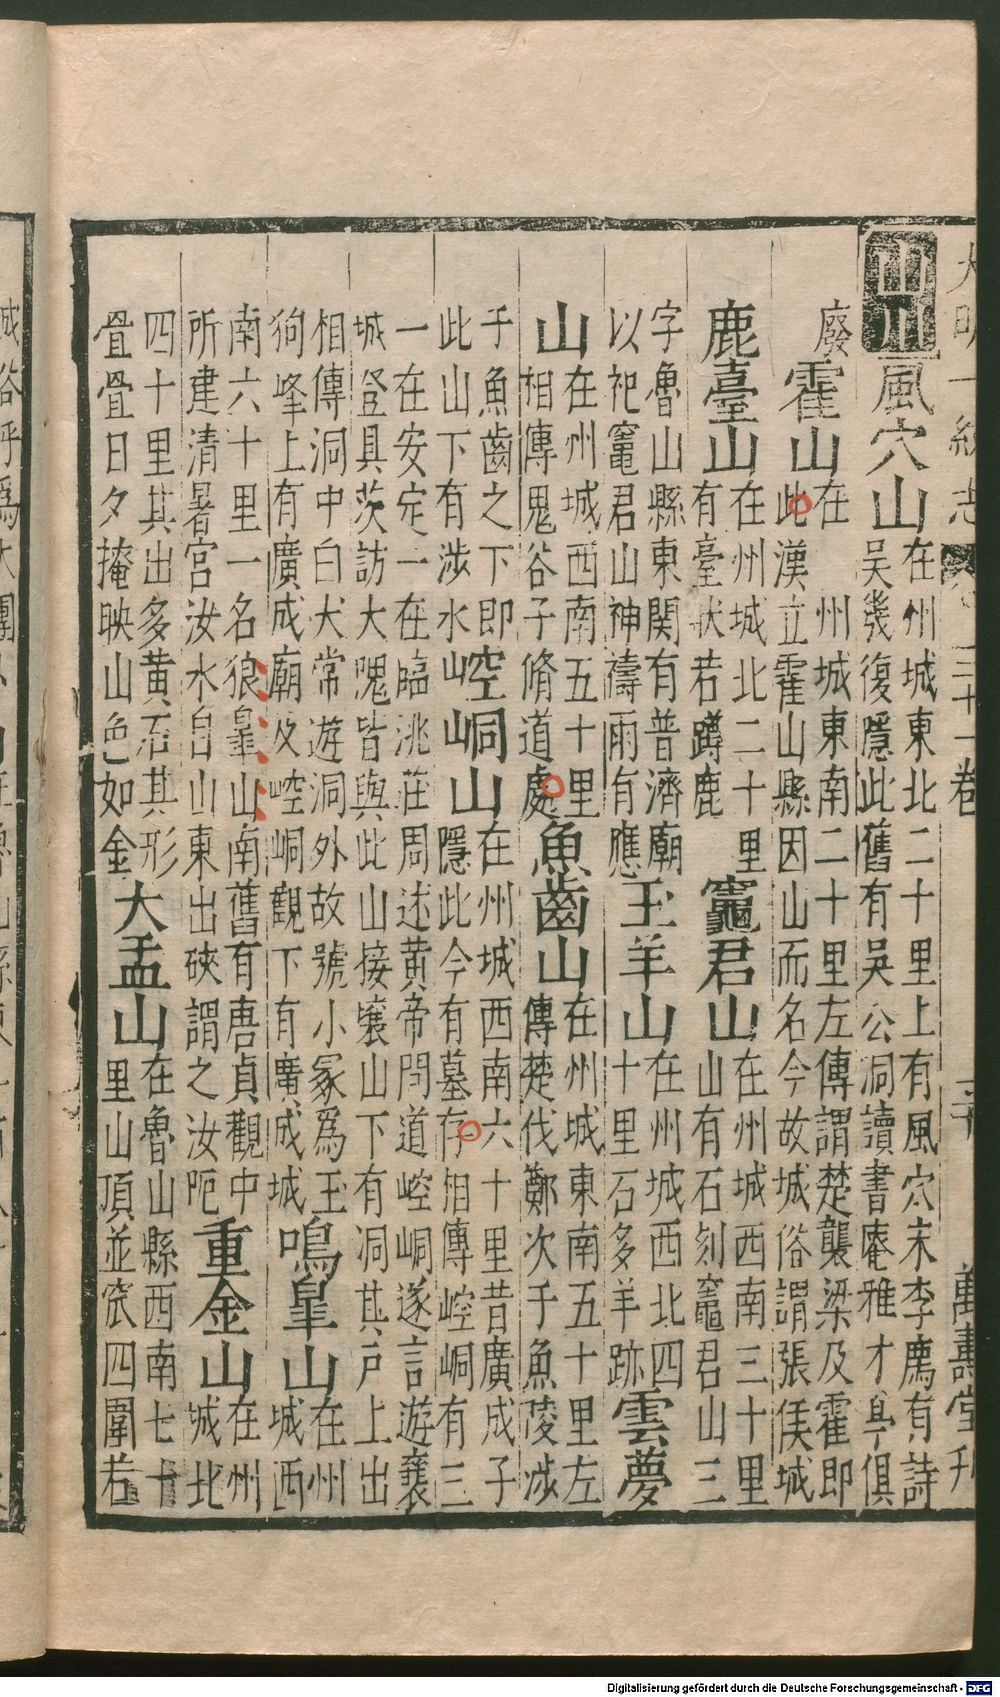 大明一統志
三十一卷
二十
萬壽堂刊
山川
風穴山
在州城東北二十里上有風穴宋李廌有詩
吳幾復隱此舊有吳公洞讀書庵雅才亭俱
廢
霍山
在州城東南二十里左傳謂楚襲梁及霍即
此漢立霍山縣因山而名今故城俗謂張侯城
鹿臺山
在州城北二十里
有臺狀若蹲鹿
竈君山
在州城西南三十里
山有石刻竈君山三
字魯山縣東関有普濟廟
以祀竈君山神禱雨有應
玉羊山
在州城西北四
十里石多羊跡
雲夢
山
在州城西南五十里
相傳鬼谷子脩道處
魚齒山
在州城東南五十里左
傳楚伐鄭次于魚陵涉
于魚齒之下即
此山下有涉水
崆峒山
在州城西南六十里昔廣成子
隱此今有墓存相傳崆峒有三
一在安定一在臨洮莊周述黃帝問道崆峒遂言遊襄
城登具茨訪大隗皆與此山接壤山下有洞其戶上出
相傳洞中白犬常遊洞外故號小冢為玉
狗峰上有廣成廟及崆峒觀下有廣成城
鳴臯山
在州
城西
南六十里一名狼臯山南舊有唐貞觀中
所建清暑宮汝水自山東出硤謂之汝阨
重金山
在州
城北
四十里其出多黃石其形
畳畳日夕掩映山色如金
大盂山
在魯山縣西南七十
里山頂並窊四圍若
Digitalisierung gefördert durch die Deutsche Forschungsgemeinschaft - DFG